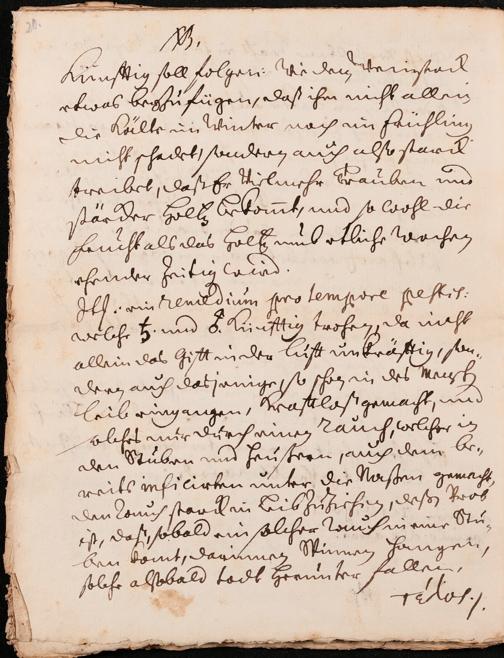 NB.
Künfftig soll folgen: Wie dem Weinstock
etwas beyzufügen, daß ihm nicht allein
die Kälte im Winter noch im Frühling
nicht schadet, sondern auch also starck
treibet, daß Er Vielmehr Trauben und
stärcker Holtz bekomt, und so wohl die
Frucht als das Holtz umb etliche Wochen
ehender Zeitig wird.
It. ein remedium pro tempore pestis:
welche ♄. und ♂. Künfftig trohen, da nicht
allein das Gifft in der lufft unkräfftig, son-
dern auch dasjenige, so schon in des Mensch
leib eingangen, Krafftlos gemacht, und
solches nur durch einen Rauch, welcher in
den Stuben und Häusern, auch dem be-
reits inficirten unter die Nasen gemacht,
den Rauch starck in Leib zu ziehen, deßen Prob
ist, daß, sobald ein solcher Rauch in eine Stu-
ben komt, darinnen Spinnen hangen,
solche alsobald todt herunter fallen,
τέλος.